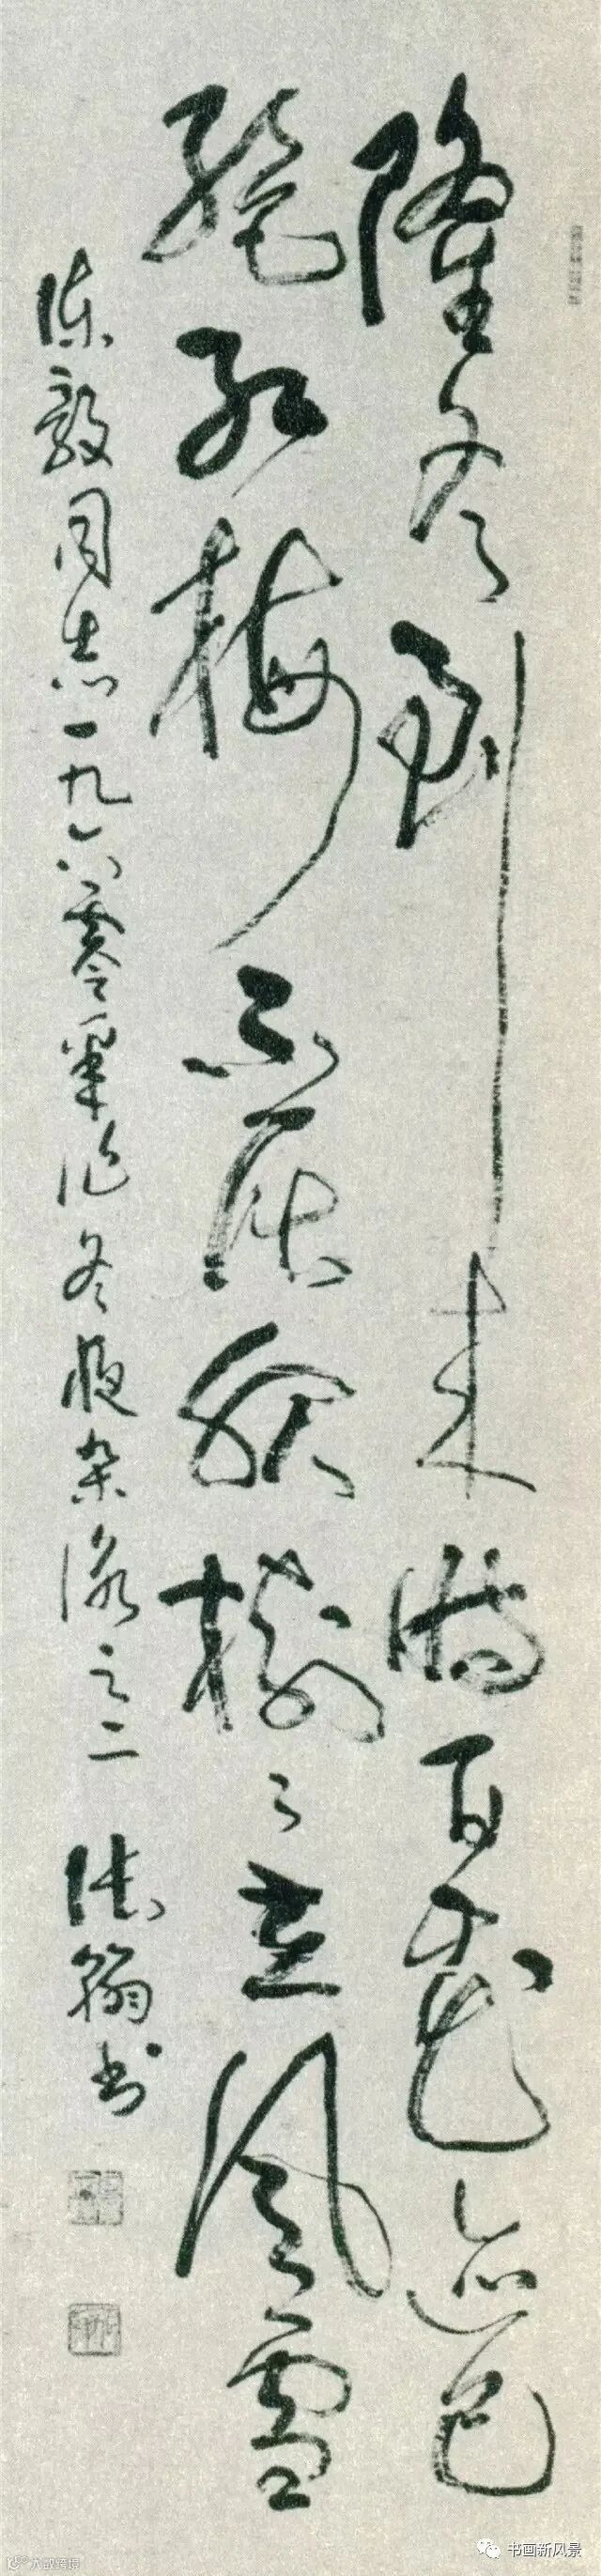 隆冬到来时百花迹已
绝红梅不屈服树〻立风雪
陈毅同志一九六零年作冬夜杂咏之二 书
书画新风景